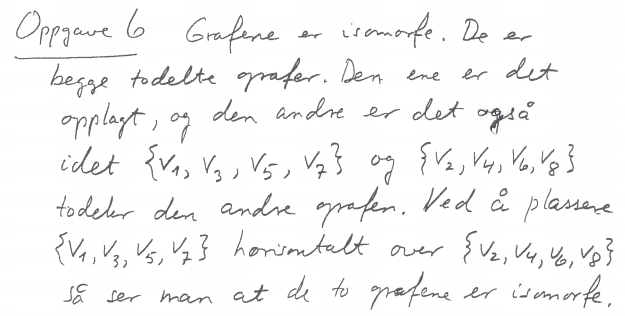 Oppgave 6 Grafene er isomorfe. De er
begge todelte grafer. Den ene er det
opplagt, og den andre er det også
idet {V₁, V₃, V₅, V₇} og {V₂, V₄, V₆, V₈}
todeler den andre grafen. Ved å plassere
{V₁, V₃, V₅, V₇} horisontalt over {V₂, V₄, V₆, V₈}
så ser man at de to grafene er isomorfe.